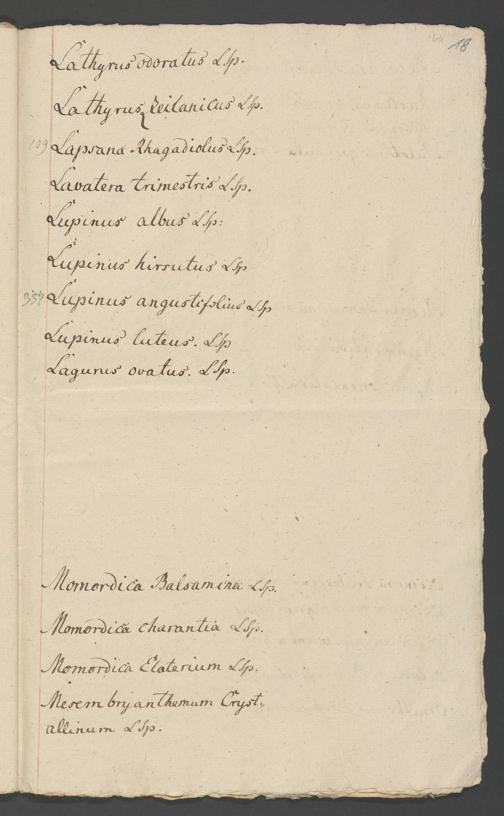 18
Lathyrus odoratus LSp.
Lathyrus Zeilanicus LSp.
109 Lapsana Rhagadiolus LSp.
Lavatera trimestris LSp.
Lupinus albus LSp:
Lupinus hirsutus LSp
337 Lupinus angustifolius LSp
Lupinus luteus. LSp
Lagurus ovatus. LSp.
Momordica Balsamina LSp.
Momordica charantia LSp.
Momordica Elaterium LSp.
Mesembryanthemum Cryst-
allinum LSp.